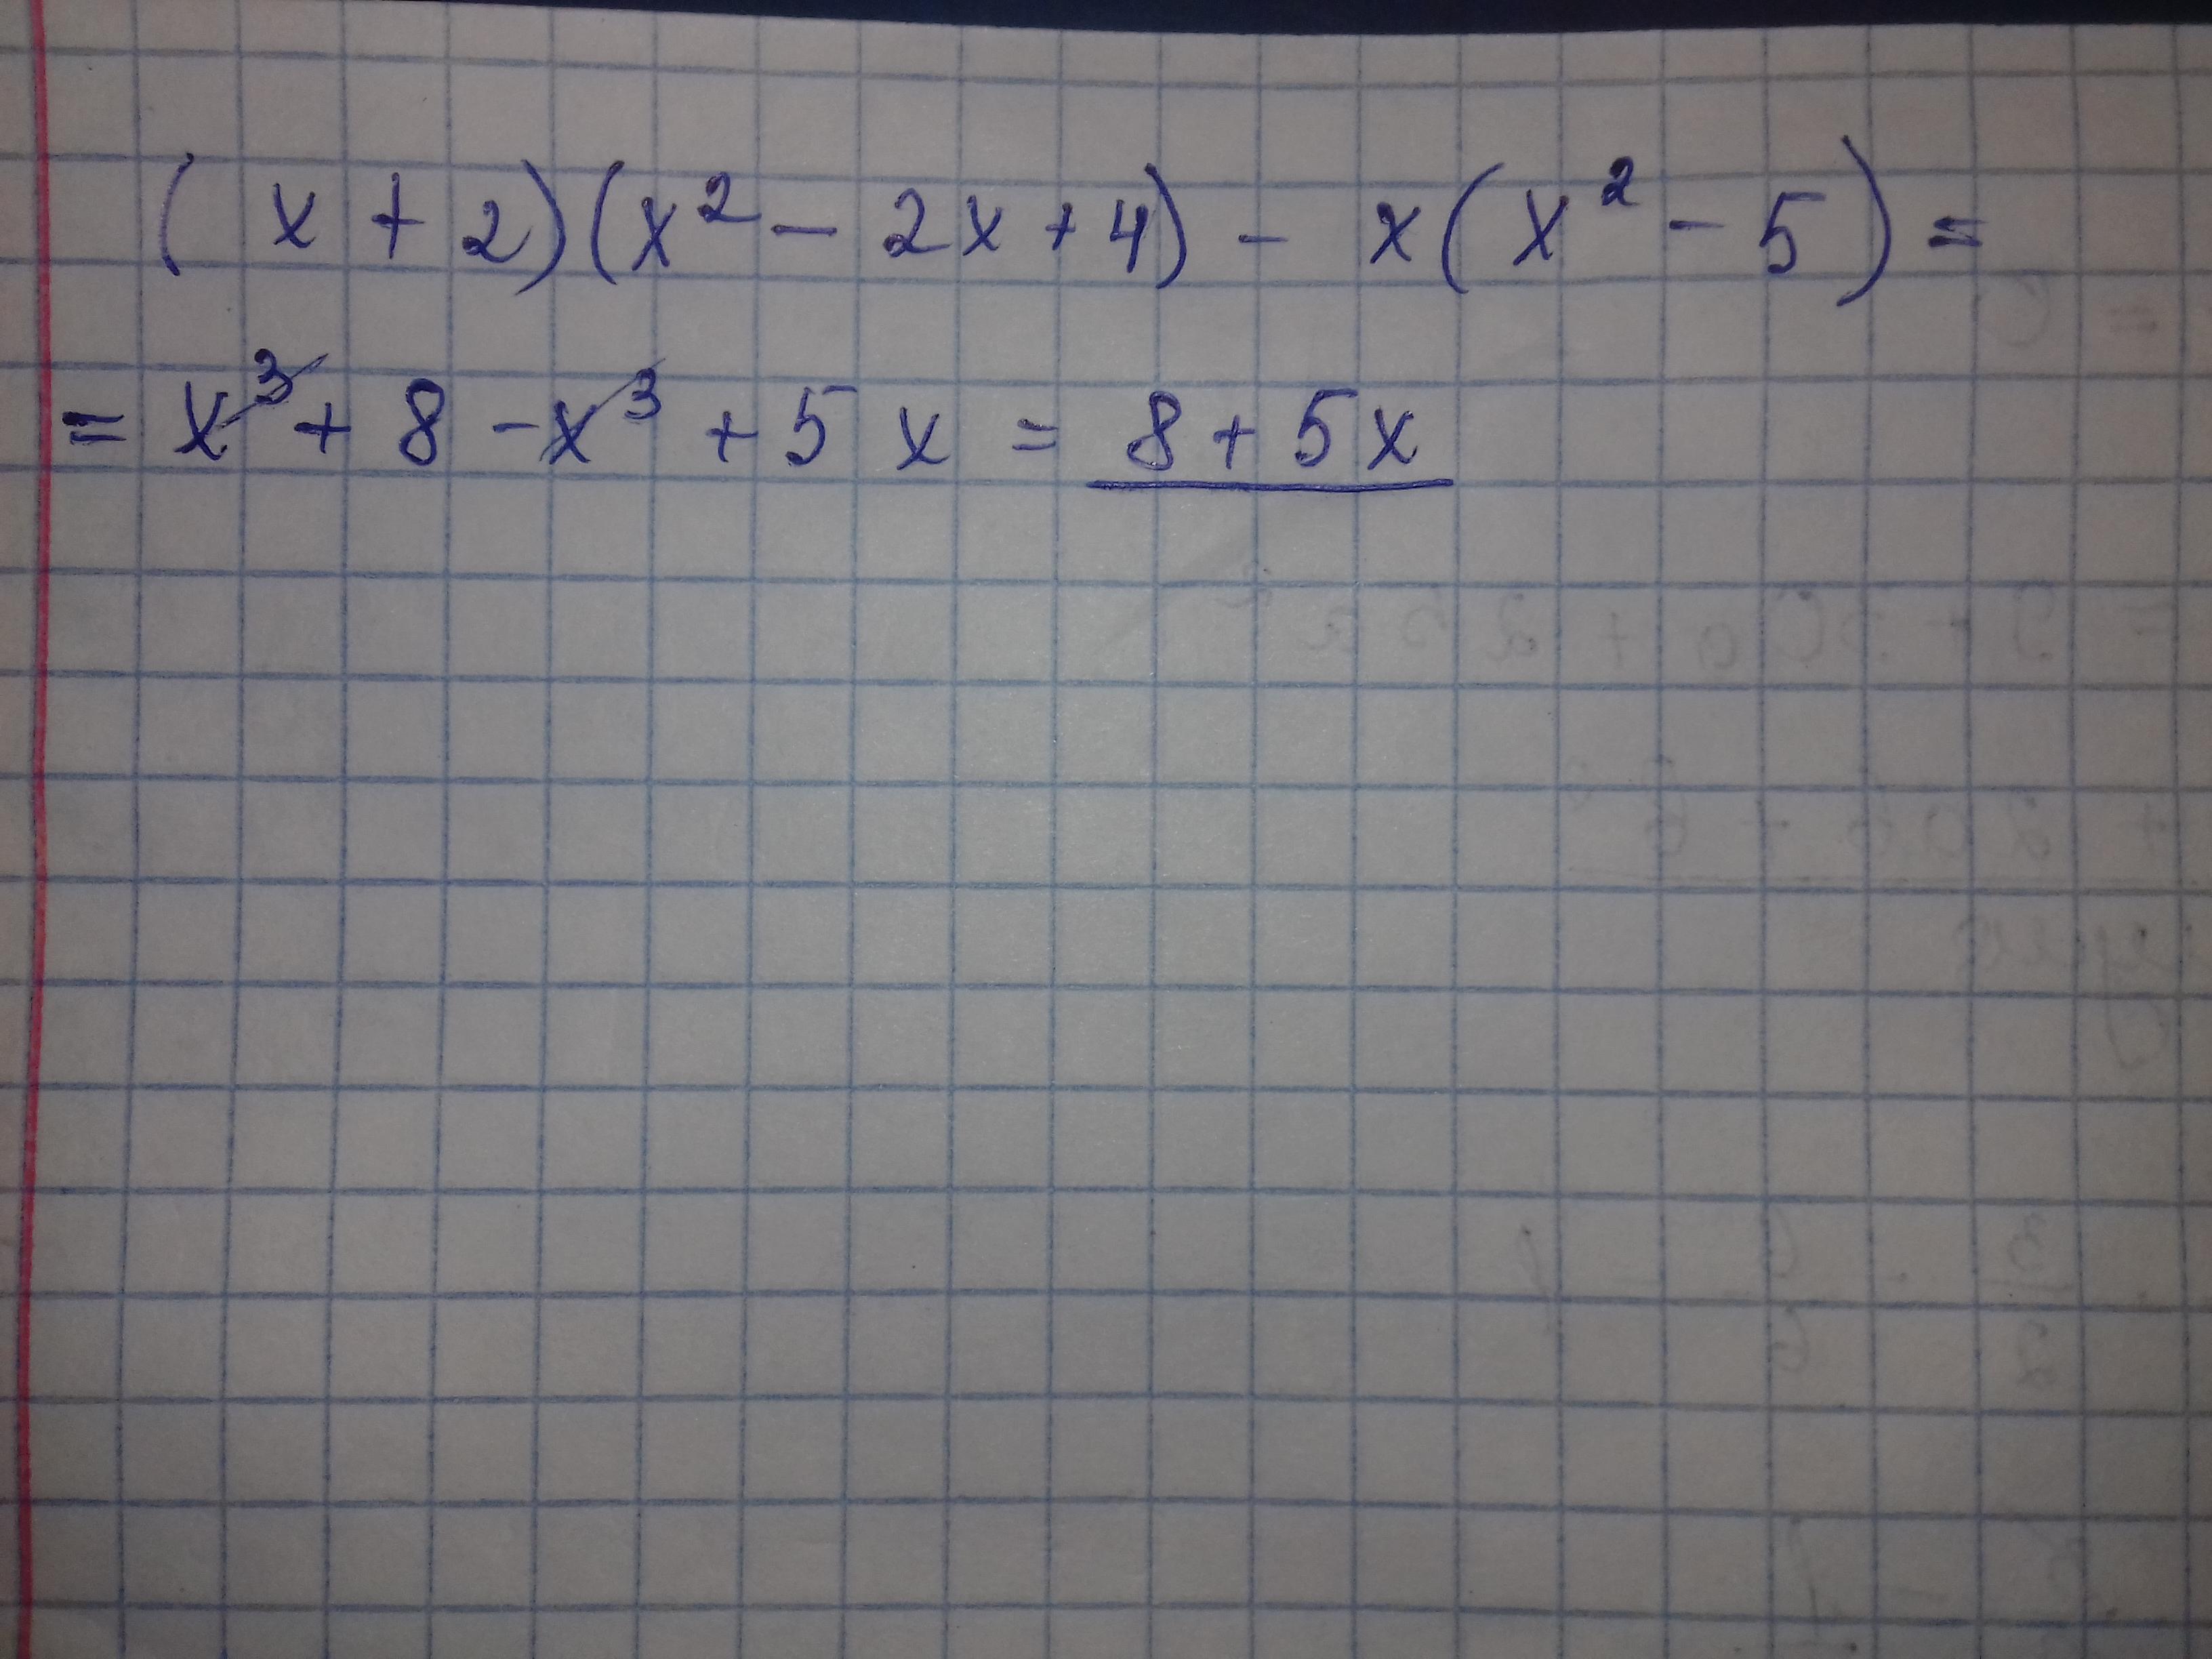 (x + 2)(x² - 2x + 4) - x(x² - 5) =
= x³ + 8 - x³ + 5x = 8 + 5x